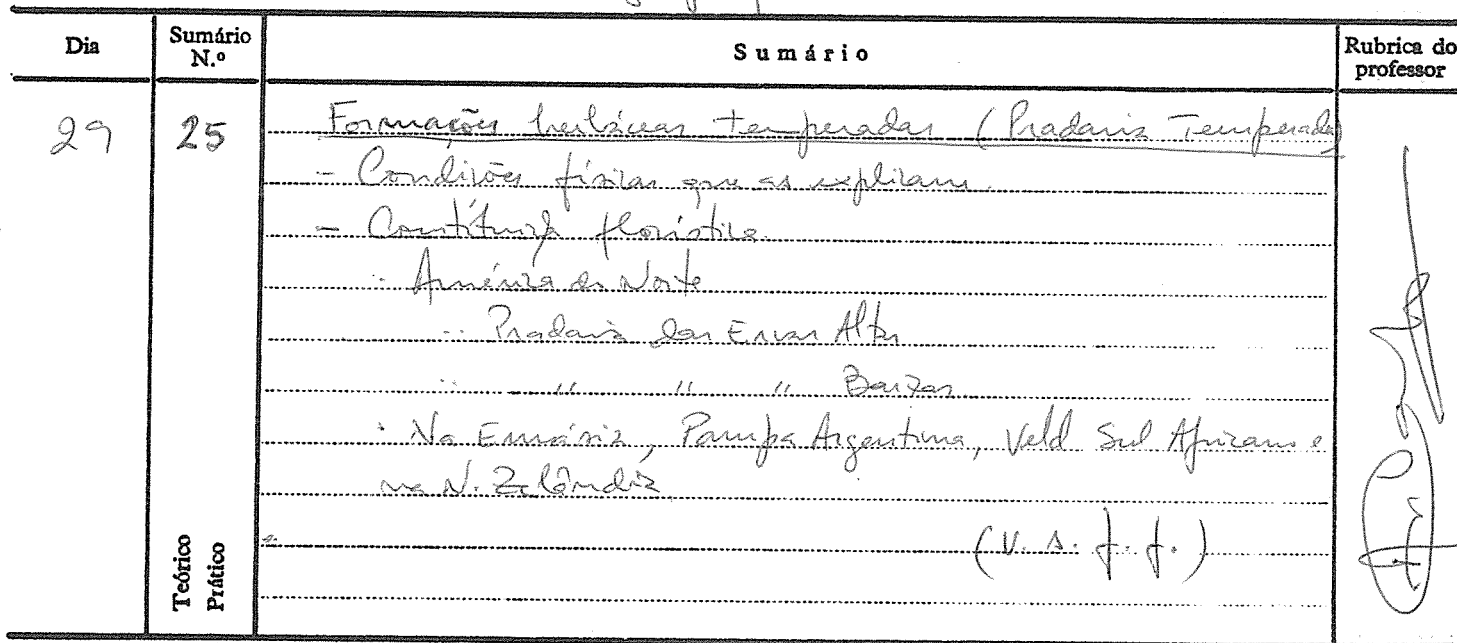 Dia
Sumário N.º
Sumário
Rubrica do professor
29
25
Formações herbáceas temperadas (Pradaria Temperada)
- Condições físicas que as explicam.
- Constituição florística.
- América do Norte
- Pradaria das Ervas Altas
" " " Baixas
. Na Eurásia, Pampa Argentina, Veld Sul Africano e
na N. Zelândia
(V. S. f. f.)
Teórico
Prático